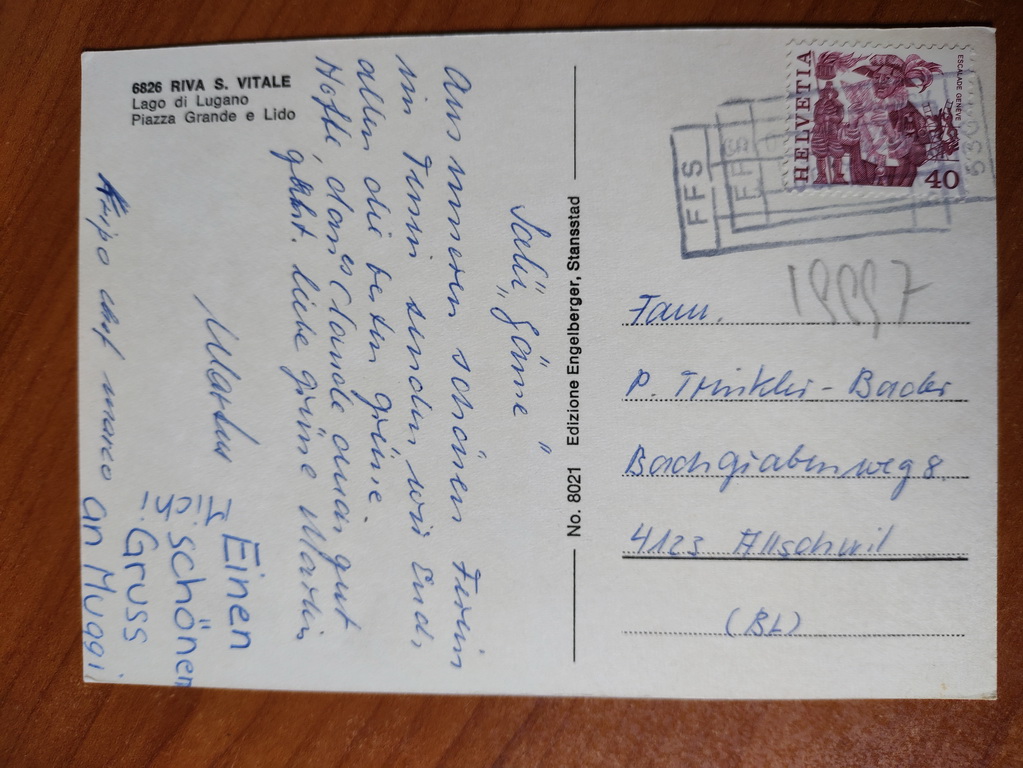 6826 RIVA S. VITALE
Lago di Lugano
Piazza Grande e Lido
Sali "Gänne"
Aus unseren schönen Ferien
im Tessin senden wir Euch,
allen die besten grüsse.
Hoffe, dan es Claude auch gut
geht. Liebe grüsse Marlis
Markus
chef marco
Einen
schönen
Gruss
an Muggi
No. 8021 Edizione Engelberger, Stansstad
HELVETIA
ESCALADE GENÈVE
40
FFS
FFS
Fam.
P. Trinkler-Bader
Bachgrabenweg 8.
4123 Allschwil
(BL)